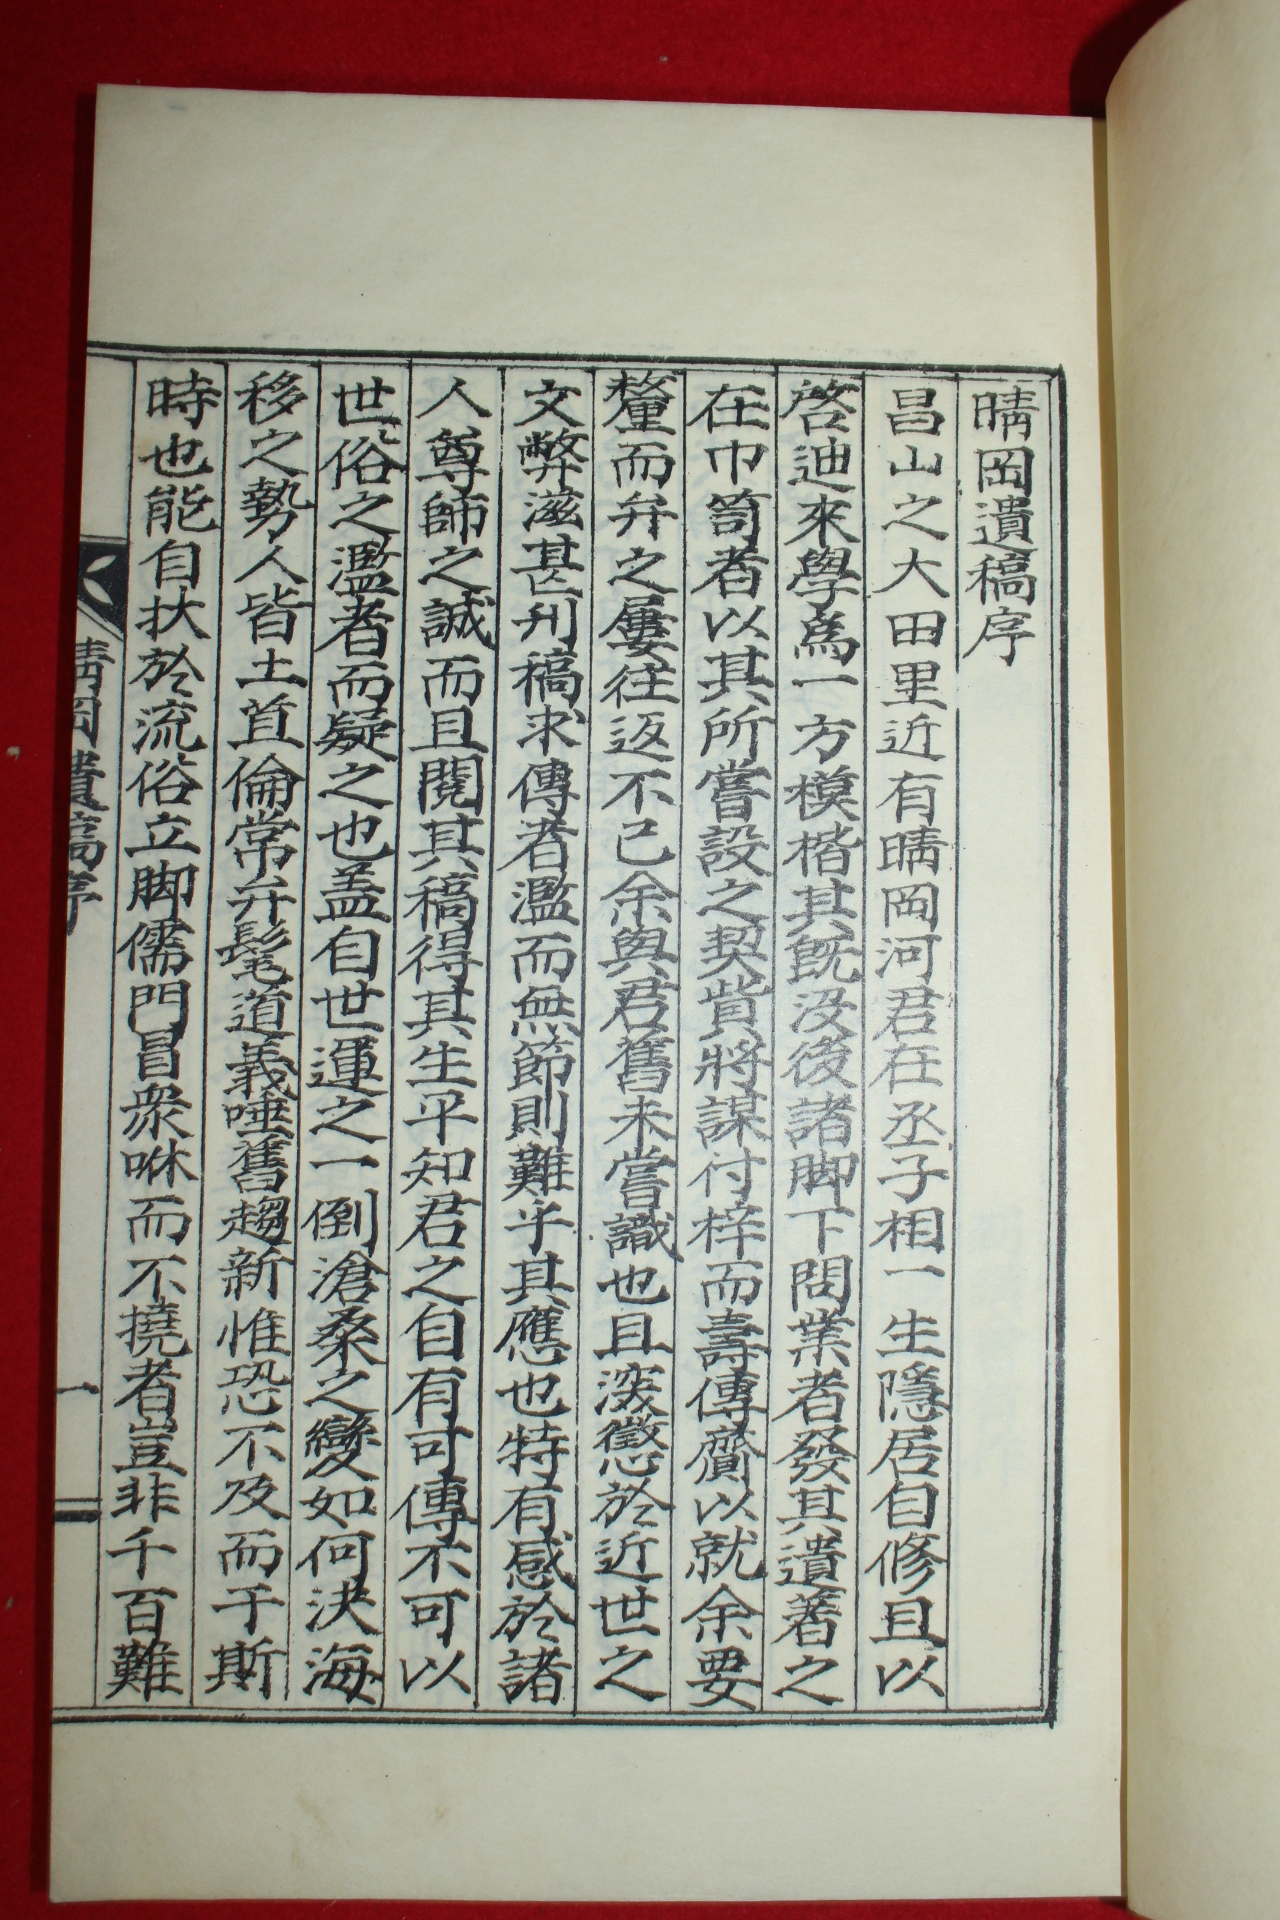 晴岡遺稿序
昌山之大田里近有晴岡河君在丞子相一生隱居自修且以
啓迪來學爲一方模楷其旣没後諸脚下問業者發其遺著之
在巾笥者以其所嘗設之契貲將謀付梓而壽傳齎以就余要
釐而弁之屢往返不已余與君舊未嘗識也且深懲於近世之
文弊滋甚刋稿求傳者濫而無節則難乎其應也特有感於諸
人尊師之誠而且閱其稿得其生平知君之自有可傳不可以
世俗之濫者而疑之也盖自世運之一倒滄桑之變如何決海
移之勢人皆土苴倫常弁髦道義唾舊趨新惟恐不及而于斯
時也能自扶於流俗立脚儒門冒衆咻而不撓者豈非千百難
晴岡遺稿序
一